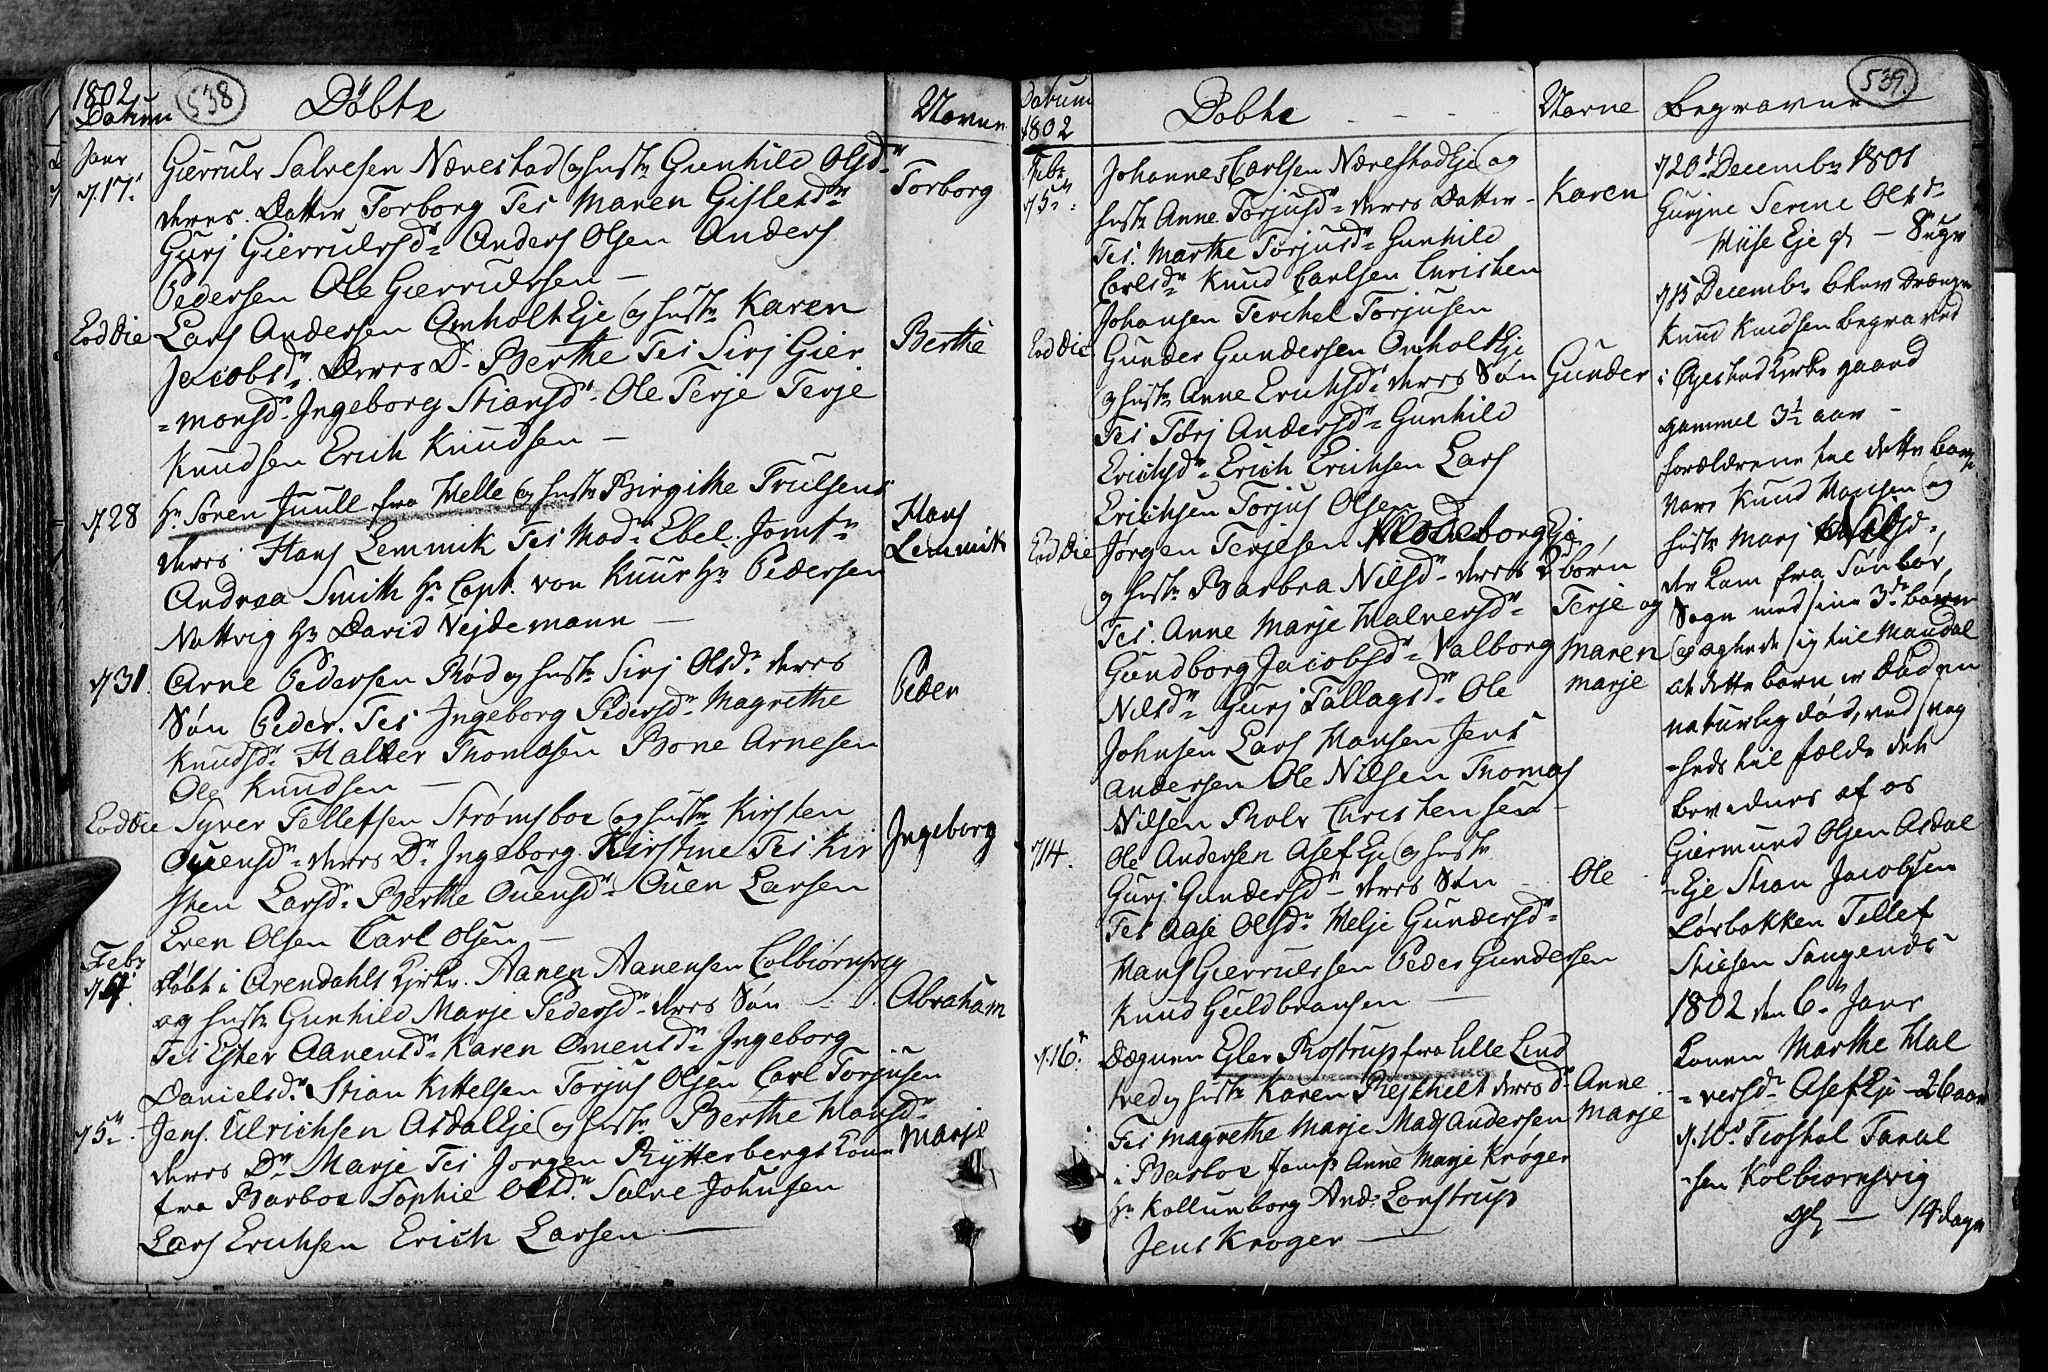 1802
Datum
538
Döbte
Navne
Janr
d. 17
Gierrulv Salvesen Nærestad og hustr Gunhild Olsdr
deres Datter Torborg Tes Maren Gislesdr
Gurj Gierrulvsdr Anders Olsen Anders
Pedersen Ole Gierrulvsen —
Torborg
Eod Die
Lars Andersen Omholt Eje og hustr Karen
Jacobsdr Deres Dr Berthe Tes Sirj Gier
=monsdr Ingeborg Stiansdr Ole Terje Terje
Knudsen Erich Knudsen —
Berthe
d 28
Hr Sören Juull fra Helle og hustr Birgithe Trulsens
deres Hans Lemmik Tes Madr Ebel Jomfr
Andrea Smith Hr Capt. von Knur Hr Pedersen
Nattvig Hr David Vejdemann —
Hans
Lemmik
d 31.
Arne Pedersen Röd og hustr Sirj Olsdr deres
Sön Peder. Tes Ingeborg Pedersdr Magrethe
Knudsdr Halver Thomasen Bone Arnesen
Ole Knudsen —
Peder
Eod die
Syver Tellefsen Strømsboe og hustr Kirsten
Ouensdr deres Dr Ingeborg Kirstine Tes Kir
sten Larsdr Berthe Ouensdr Ouen Larsen
Even Olsen Carl Olsen —
Ingeborg
Febr
döbt i Arendahls Kjrke. Aanen Aanensen Colbiörnsvig
og hustr Gunhild Marje Pedersdr deres Sön
Tes Ester Aanensdr Karen Omensdr Ingeborg
Danielsdr Stian Kittelsen Torjus Olsen Carl Torjusen
Abraham
d 5te.
Jens Ulrichsen Asdal Eje og hustr Berthe Hansdr
deres Dr Marje Tes Jorgen Rÿtterbergs Kone
fra Barboe Sophie Olsdr Salve Johnsen
Lars Erichsen Erich Larsen —
Marje
Datum
1802
Döbte - - -
Navne
Begravne
539.
Febr
d 5te.
Johannes Carlsen Nærestad Eje og
hustr Anne Torjusdr deres Datter -
Tes. Marthe Torjusdr Gunhild
Carlsdr Knud Carlsen Christen
Johansen Terchel Torjusen
Karen
Eod Die
Gunder Gundersen Omholt Eje
og hustr Anne Erichsdr deres Sön
Tes Torj Andersdr Gunhild
Erichsdr Erich Erichsen Lars
Erichsen Torjus Olsen
Gunder
Eod Die
Jørgen Terjesen Woieborg Eje
og hustr Barbra Nilsdr deres 2 börn
Tes. Anne Marje Halversdr
Gundborg Jacobsdr Valborg
Nilsdr Gurj Tallagsdr Ole
Johnsen Lars Hansen Jens
Andersen Ole Nilsen Thomas
Nilsen Rolv Christensen
Terje og
Maren
Marje
d 14.
Ole Andersen Asef Eje og hustr
Gurj Gundersdr deres Sön
Tes Aase Olsdr Helje Gundersdr
Hans Gierrulvsen Peder Gundersen
Knud Guldbransen —
Ole
d. 16.
Dægnen Ejler Rostrup fra Lille Lind
tved og hustr Karen Resthelt deres Dr
Tes Magrethe Marje Mads Andersen
i Barboe Jomfr Anne Marje Krøger
Hr Kallunborg Andr Lonstrup
Jens Krøger —
Anne
Marje
d 20de Decembr 1801
Gurjne Serine Olsdr
Miise Eje gl — 8 ugr
d 13 Decembr blev Drænge
Knud Knudsen begraved
i Øjestad Kjrke gaard
gammel 3½ aar -
forældrene til dette barn
vare Knud Hansen og
hustr Marj Nilsdr,
der kom fra Sönbör
Sogn med sine 3de börn
og agtede sig til Mandal
at dette barn er död en
naturlig död, ved svag
=heds til fælde det
bevidnes af os
Giermund Olsen Asdal
=Eje Stian Jacobsen
Lörbakken Tellef
Stiesen Songend-
1802 den 6te Janr
Konen Marthe Hal
=versdr Asef Eje - 26 aar
d. 10de Tarald
=sen Kolbiornsvig
gl — 14 dage